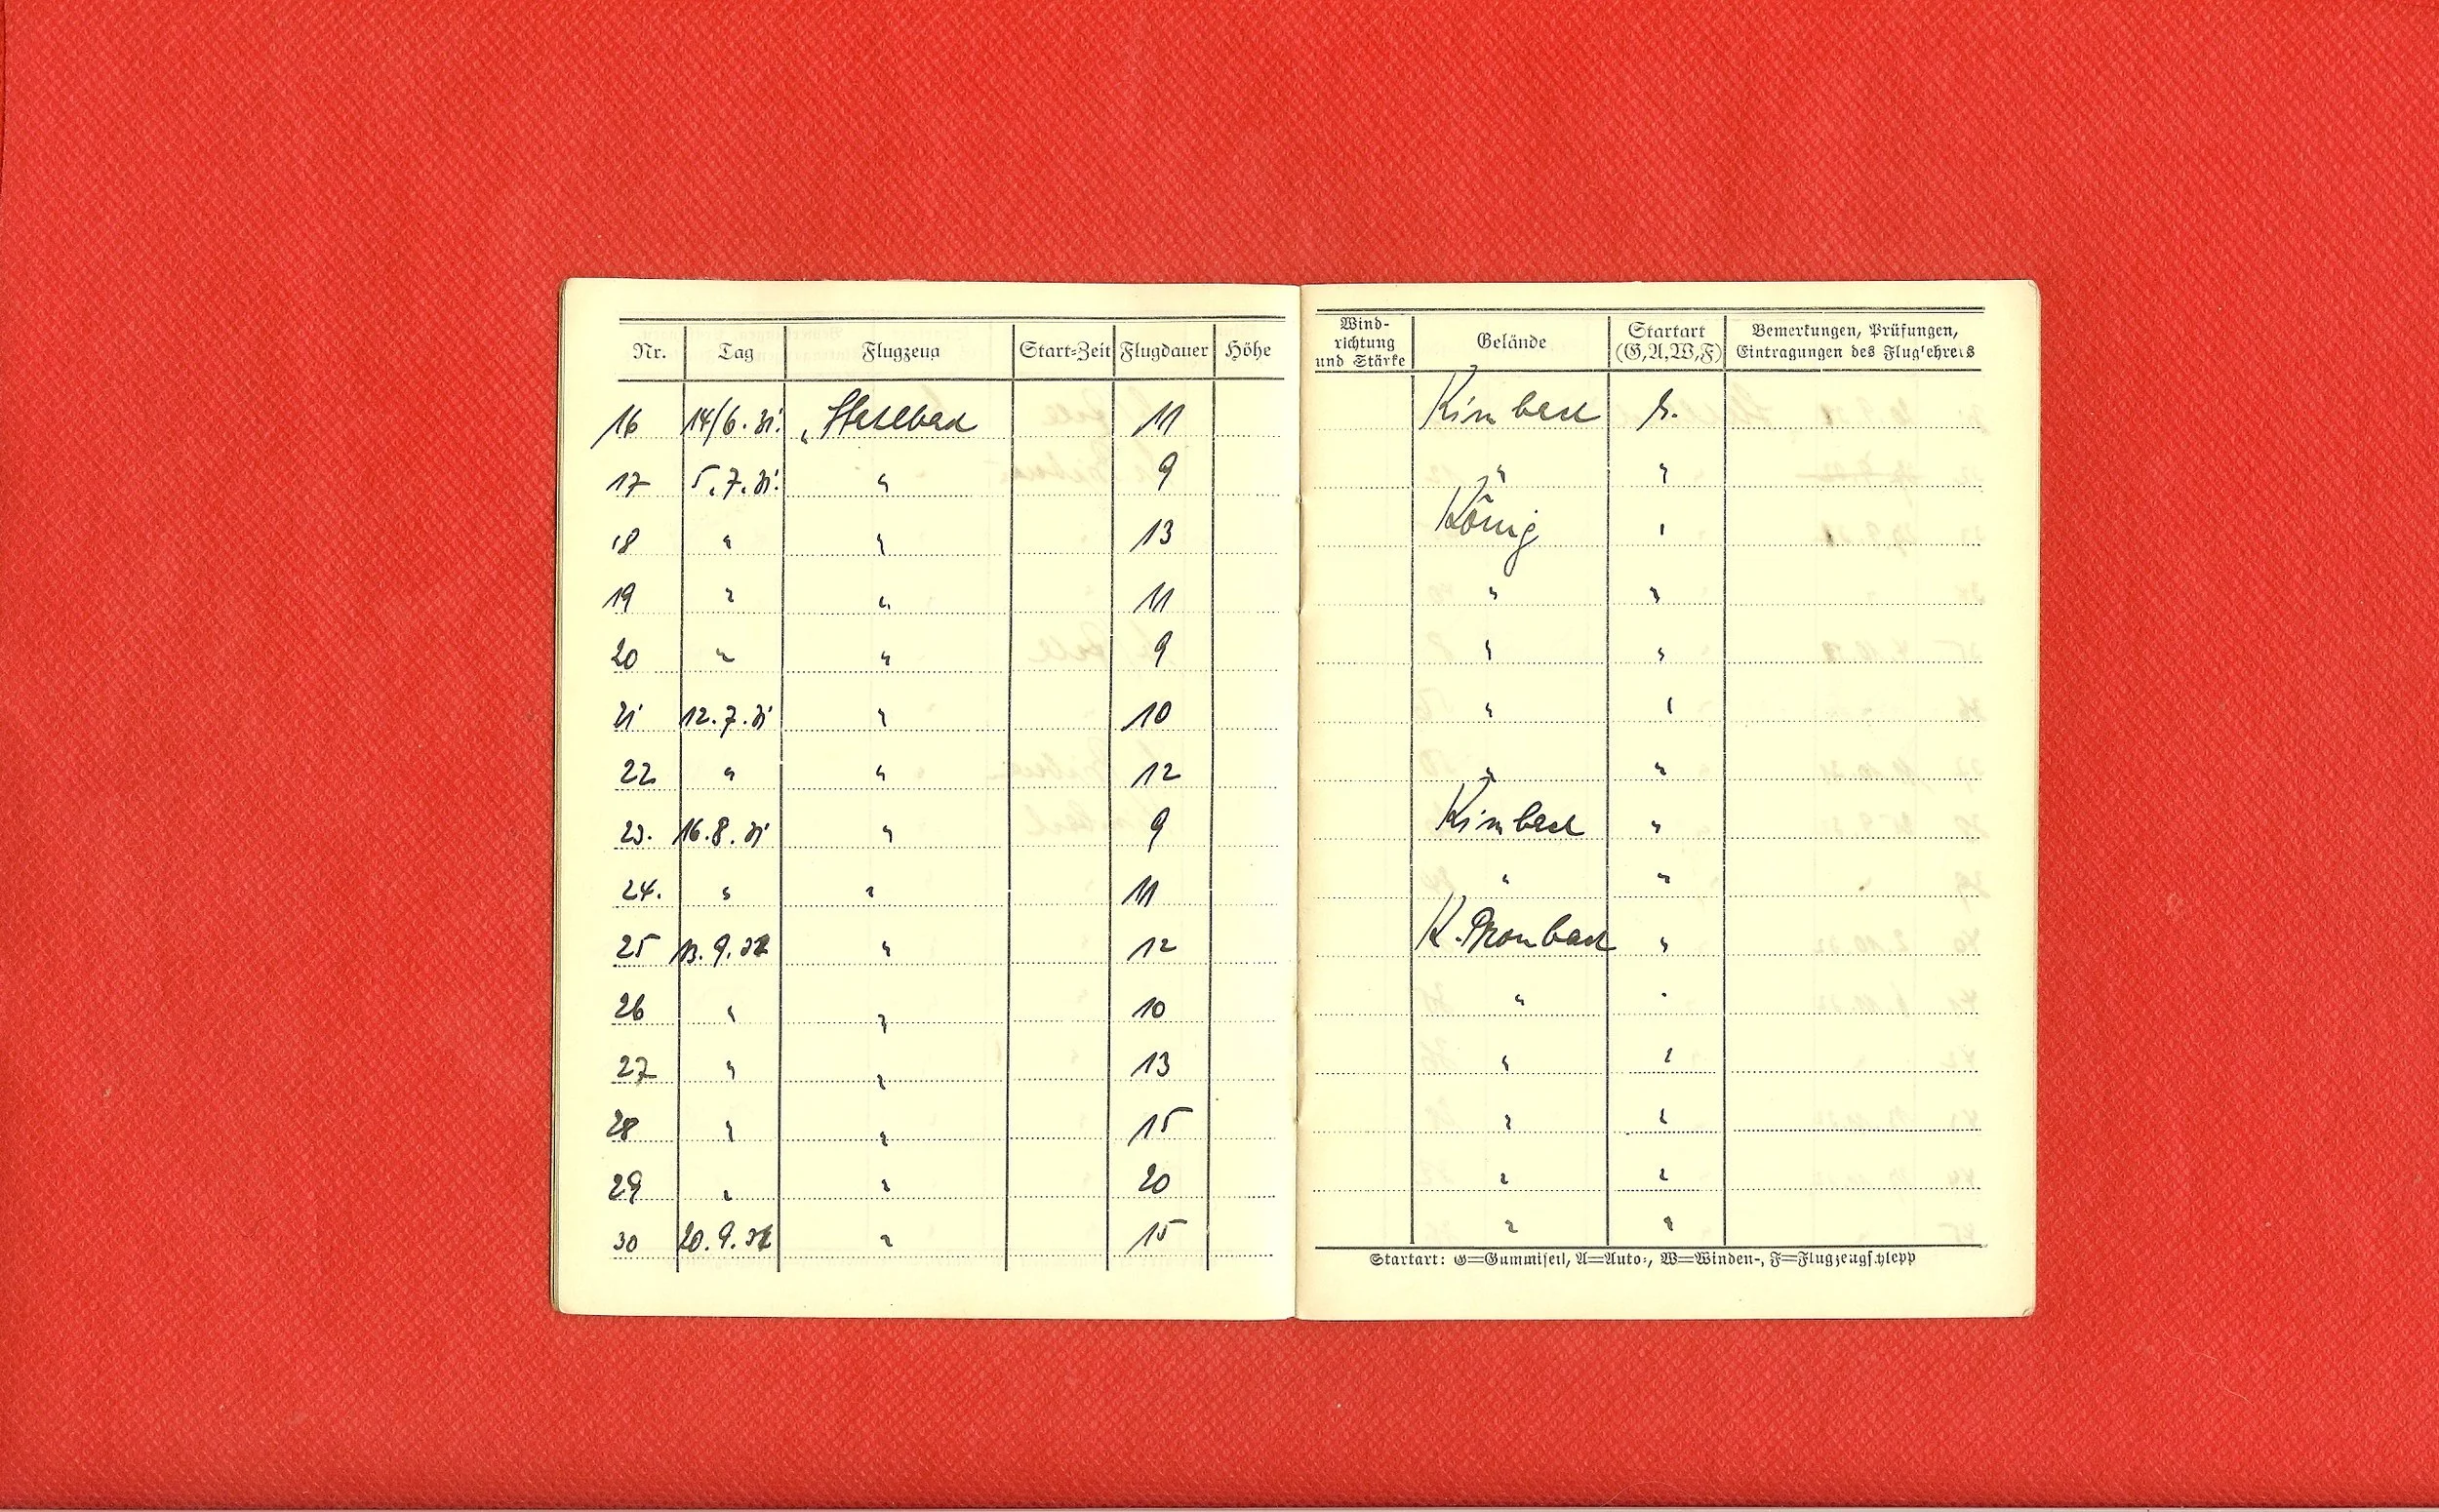 Nr. Tag Flugzeug Start-Zeit Flugdauer Höhe
16 14/6.31. 11
17 5.7.31. " 9
18 " " 13
19 " " 11
20 " " 9
21 12.7.31 " 10
22 " " 12
23. 16.8.31 " 9
24. " " 11
25 13.9.31 " 12
26 " " 10
27 " " 13
28 " " 15
29 " " 20
30 20.9.31 " 15
Wind-
richtung
und Stärke Gelände Startart
(G,A,W,F) Bemerkungen, Prüfungen,
Eintragungen des Fluglehrers
Kimbach G.
" "
König "
" "
" "
" "
" "
Kimbach "
" "
K. Mombach "
" "
" "
" "
" "
" "
Startart: G=Gummiseil, A=Auto-, W=Winden-, F=Flugzeugschlepp